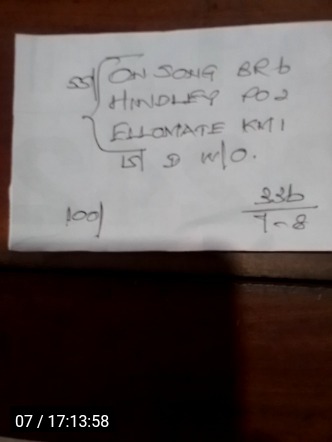 55/ ON SONG BR6
HINDLEY PO2
ELLOMATE KM1
15/ D W/O.
100/
33b
7-8
07 / 17:13:58